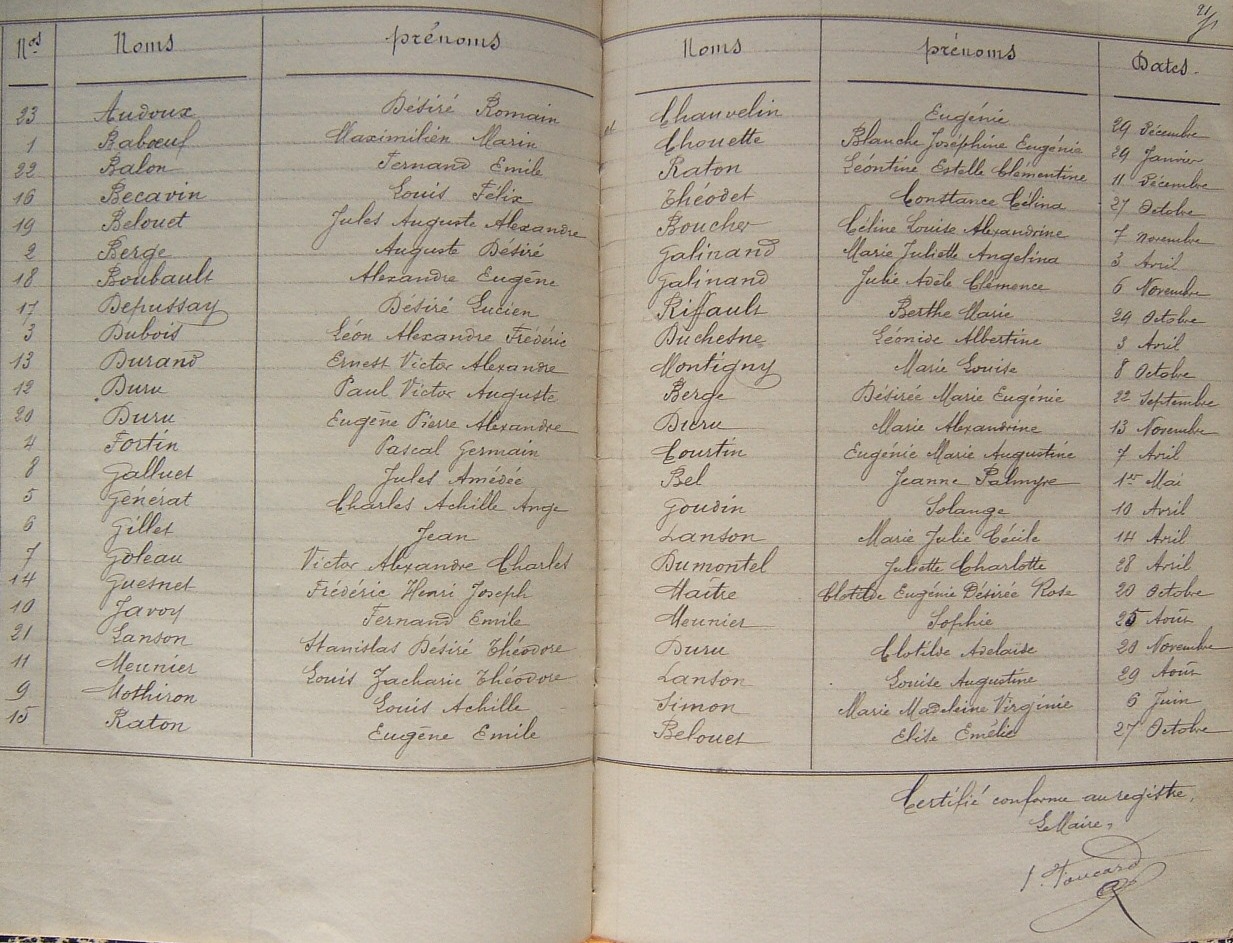 Nos Noms prénoms Noms prénoms Dates.
23 Audoux Désiré Romain et Chauvelin Eugénie 29 Décembre
1 Babœuf Maximilien Marin Chouette Blanche Joséphine Eugénie 29 Janvier
22 Balon Fernand Emile Raton Léontine Estelle Clémentine 11 Décembre
16 Becavin Louis Félix Théodet Constance Célina 27 Octobre
19 Belouet Jules Auguste Alexandre Boucher Céline Louise Alexandrine 7 Novembre
2 Berge Auguste Désiré Galinand Marie Juliette Angelina 3 Avril
18 Boubault Alexandre Eugène Galinand Julie Adèle Clémence 6 Novembre
17 Depussay Désiré Lucien Riffault Berthe Marie 29 Octobre
3 Dubois Léon Alexandre Frédéric Duchesne Léonide Albertine 3 Avril
13 Durand Ernest Victor Alexandre Montigny Marie Louise 8 Octobre
12 Duru Paul Victor Auguste Berge Désirée Marie Eugénie 22 Septembre
20 Duru Eugène Pierre Alexandre Duru Marie Alexandrine 13 Novembre
4 Fortin Pascal Germain Courtin Eugénie Marie Augustine 7 Avril
8 Galluet Jules Amédée Bel Jeanne Palmyre 1er Mai
5 Générat Charles Achille Ange Goudin Solange 10 Avril
6 Gillet Jean Lanson Marie Julie Cécile 14 Avril
7 Goleau Victor Alexandre Charles Dumontel Juliette Charlotte 28 Avril
14 Guesnet Frédéric Henri Joseph Maître Clotilde Eugénie Désirée Rose 20 Octobre
10 Javoy Fernand Emile Meunier Sophie 25 Août
21 Lanson Stanislas Désiré Théodore Duru Clotilde Adelaïde 20 Novembre
11 Meunier Louis Zacharie Théodore Lanson Louise Augustine 29 Août
9 Mothiron Louis Achille Simon Marie Madeleine Virginie 6 Juin
15 Raton Eugène Emile Belouet Elise Emélie 27 Octobre
Certifié conforme au registre,
Le Maire,
Toucard